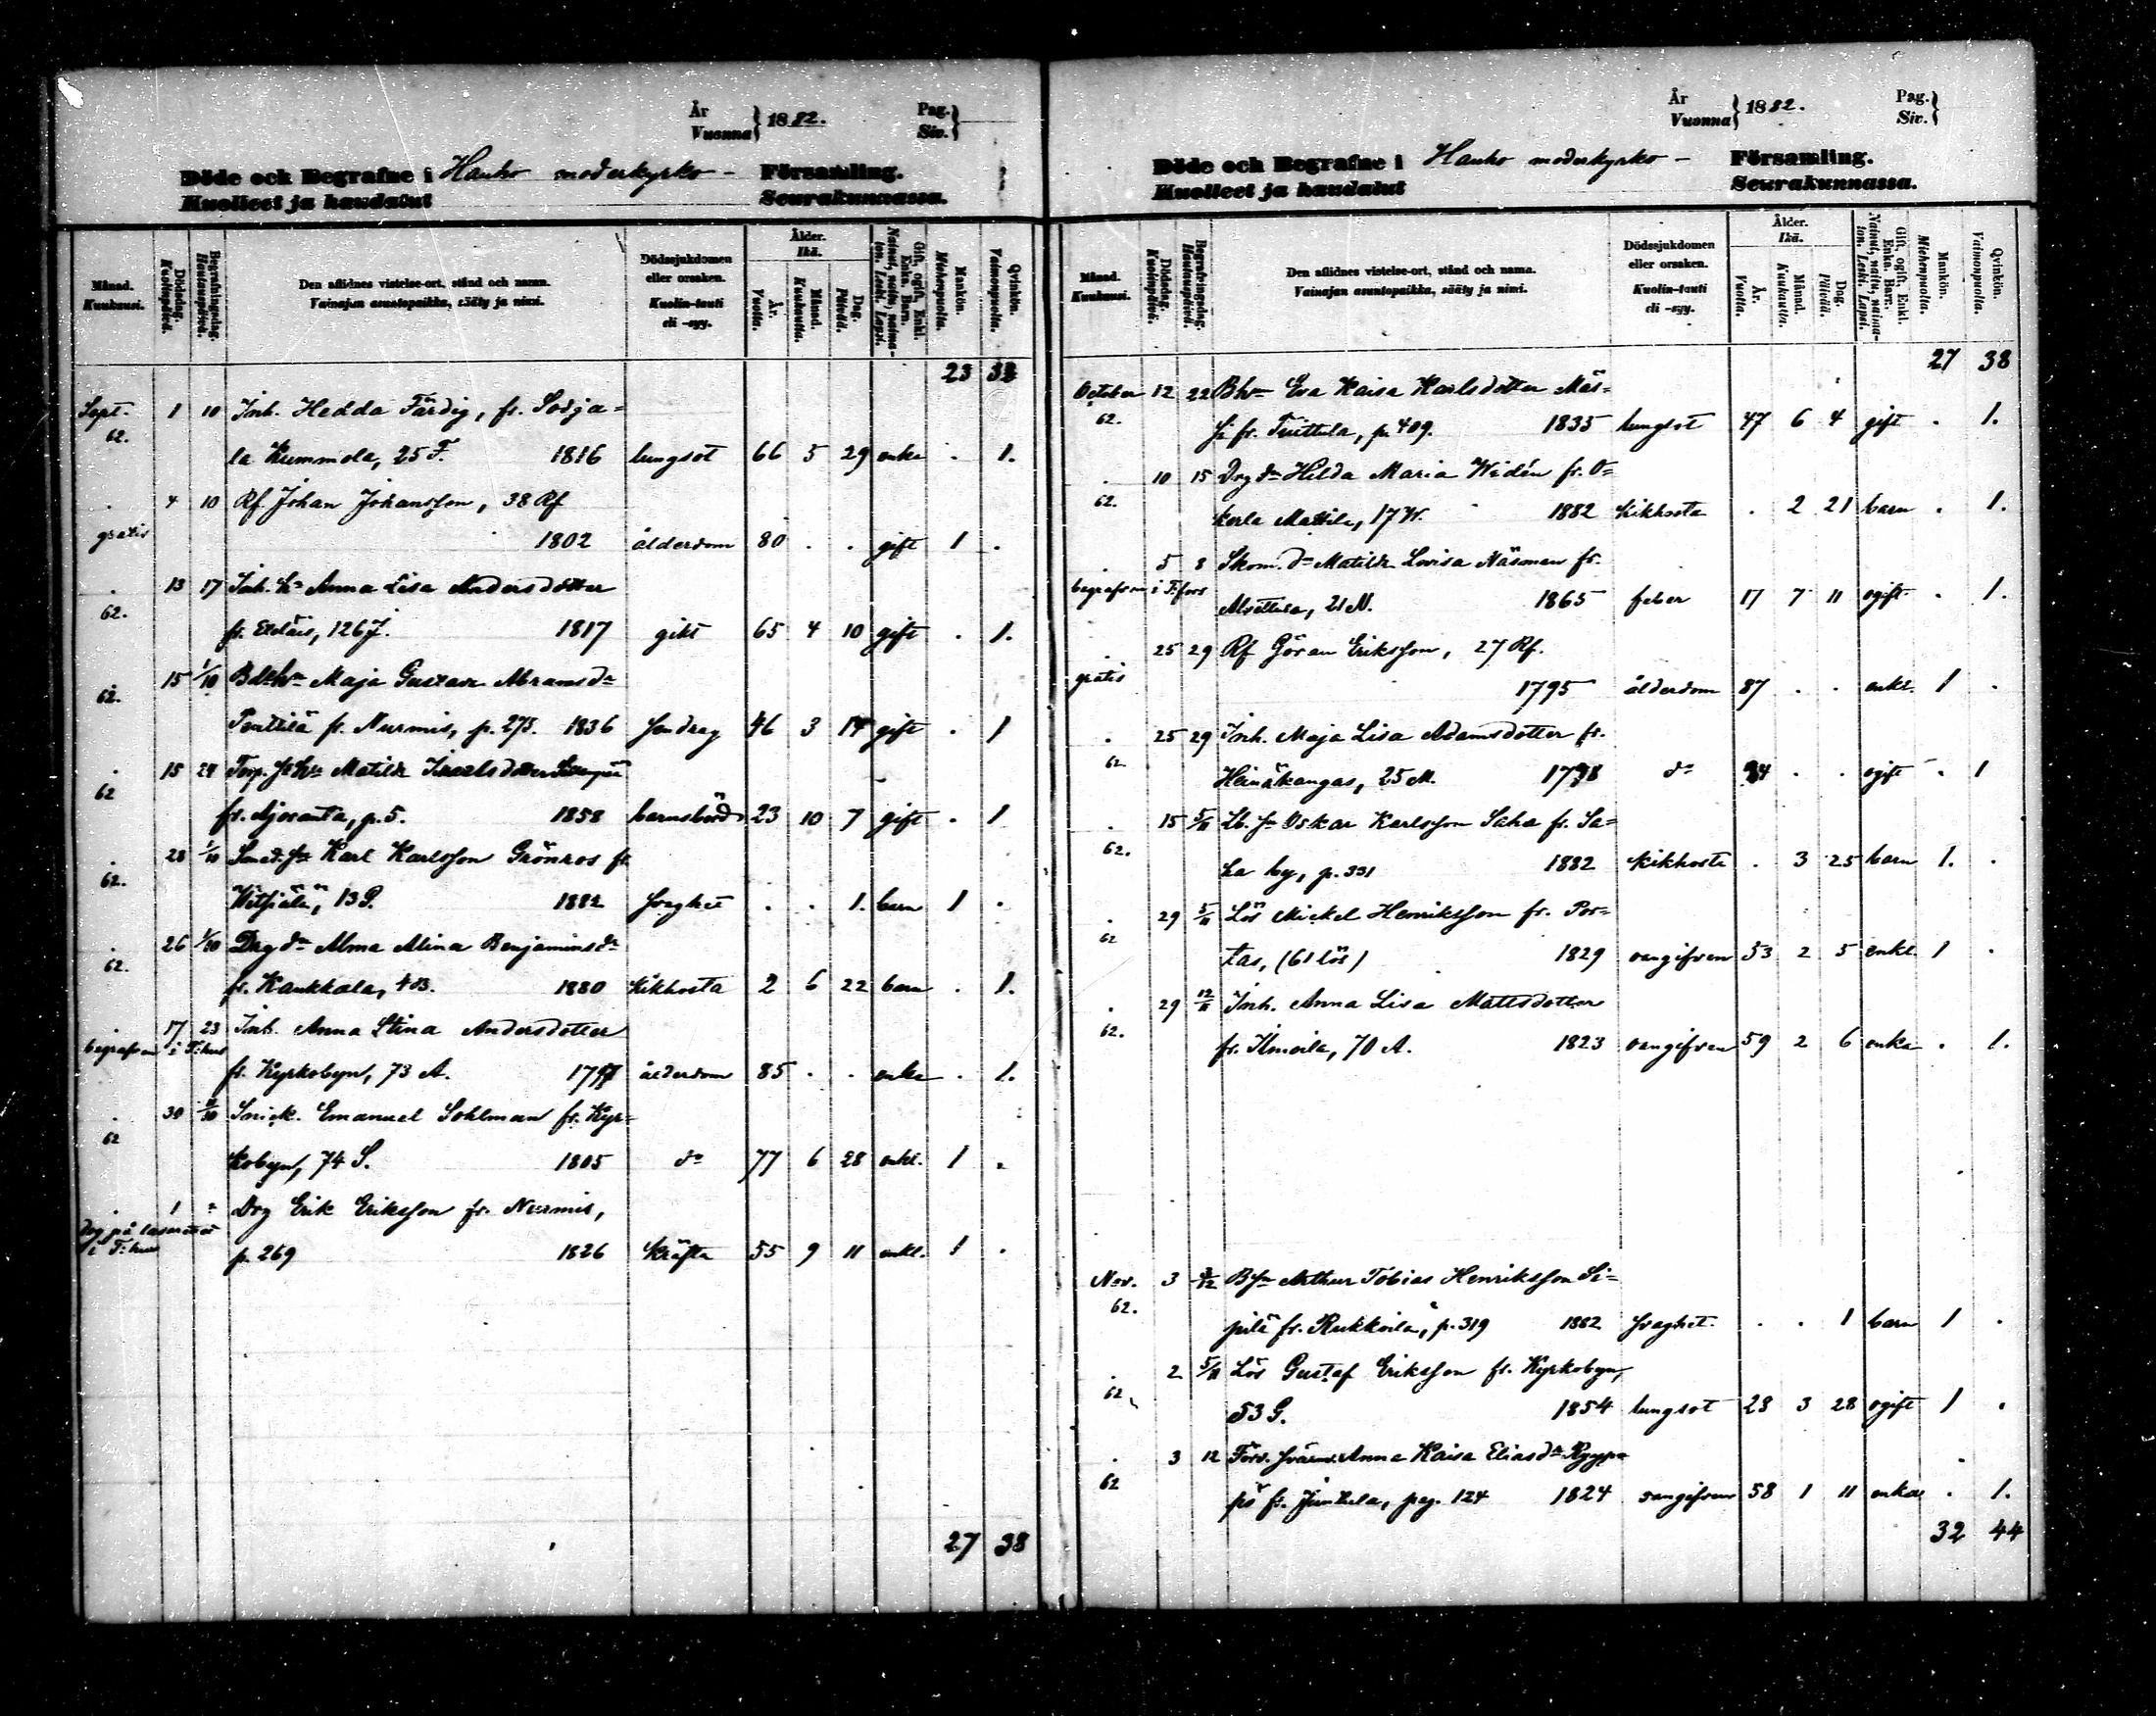 År
Vuonna } 1882.
Pag.
Siv. }
Döde och Begrafne i Hauho moderkyrko- Församling.
Kuolleet ja haudatut Seurakunnassa.
Månad. Kuukausi.
Dödsdag. Kuolinpäivä.
Begrafningsdag. Hautauspäivä.
Den aflidnes vistelse-ort, stånd och namn.
Vainajan asuntopaikka, sääty ja nimi.
Dödssjukdomen eller orsaken.
Kuolin-tauti eli -syy.
Ålder. Ikä.
År. Vuotta.
Månad. Kuukautta.
Dag. Päivää.
Gift, ogift, Enkl. Enka. Barn.
Nainut, naitu, naimaton. Leski. Lapsi.
Mankön. Miehenpuolta.
Qvinkön. Vaimonpuolta.
23 33
Sept. 1 10 Inh. Hedda Färdig, fr. Sodja=
62. la Kummola, 25 F. 1816 lungsot 66 5 29 enka . 1.
. 4 10 Rf Johan Johansson, 38 Rf
gratis 1802 ålderdom 80 . . gift 1 .
. 13 17 Inh. h:u Anna Lisa Andersdotter
62. fr. Eteläis, 126 J. 1817 gikt 65 4 10 gift . 1.
15 1/10 Maja Gustava Abramsd:r
62. Penttilä fr. Nurmis, p. 275. 1836 46 3 14 gift . 1
. 15 24 Torp. Matilda Israelsdotter
62 fr. Ajosanta, p. 5. 1858 barnsbörd 23 10 7 gift . 1
. 28 1/10 Karl Karlsson Grönros fr.
62. Witsiälä, 13 G. 1882 svaghet . . 1. barn 1 .
. 26 1/10 Drg d:r Alma Alina Benjaminsd:r
62. fr. Kaukkala, 1880 kikhosta 2 6 22 barn . 1.
. 17 23 Inh. Anna Stina Andersdotter
begrafven i T:hus fr. Kyrkobyn, 73 A. 1797 ålderdom 85 . . enka . 1.
. 30 Snick. Emanuel Sohlman fr. Kyr=
62 kobyn, 74 S. 1805 d:o 77 6 28 enkl. 1 .
. 1 Drg Erik Eriksson fr. Nurmis,
Dog på lasarettet i T:hus p. 269 1826 kräfta 55 9 11 enkl. 1 .
27 38
År
Vuonna } 1882.
Pag.
Siv. }
Döde och Begrafne i Hauho moderkyrko- Församling.
Kuolleet ja haudatut Seurakunnassa.
Månad. Kuukausi.
Dödsdag. Kuolinpäivä.
Begrafningsdag. Hautauspäivä.
Den aflidnes vistelse-ort, stånd och namn.
Vainajan asuntopaikka, sääty ja nimi.
Dödssjukdomen eller orsaken.
Kuolin-tauti eli -syy.
Ålder. Ikä.
År. Vuotta.
Månad. Kuukautta.
Dag. Päivää.
Gift, ogift, Enkl. Enka. Barn.
Nainut, naitu, naimaton. Leski. Lapsi.
Mankön. Miehenpuolta.
Qvinkön. Vaimonpuolta.
27 38
October 12 22 Eva Kaisa Karlsdotter Mäs=
62. si fr. Tuittula, p. 409. 1835 lungsot 47 6 4 gift . 1.
. 10 15 Drg d:r Hilda Maria Widén fr. O=
62. kerla Mattila, 17 W. 1882 kikhosta . 2 21 barn . 1.
. 5 8 Skom. d:r Matilda Lovisa Näsman fr.
begrafven i T:fors Alvettula, 21 N. 1865 feber 17 7 11 ogift . 1.
. 25 29 Rf Göran Eriksson, 27 Rf.
gratis 1795 ålderdom 87 . . enkl. 1 .
. 25 29 Inh. Maja Lisa Adamsdotter fr.
62. Heinäkangas, 25 M. 1798 d:o 84 . . ogift . 1
. 15 5/11 Oskar Karlsson Saha fr. Sa=
62. ha by, p. 331 1882 kikhosta . 3 25 barn 1. .
. 29 5/11 Lös Mickel Henriksson fr. Por=
62 tas, (61 lös) 1829 oangifven 53 2 5 enkl. 1 .
. 29 12/11 Inh. Anna Lisa Mattsdotter
62. fr. Ilmoila, 70 A. 1823 oangifven 59 2 6 enka . 1.
Nov. 3 3/12 Arthur Tobias Henriksson Si=
62. pilä fr. Rukkoila, p. 319 1882 svaghet . . 1 barn 1 .
. 2 5/11 Lös Gustaf Eriksson fr. Kyrkobyn,
62 53 G. 1854 lungsot 28 3 28 ogift 1 .
. 3 12 Anna Kaisa Eliasd:r Ryyp=
62 pö fr. Juntula, pag. 124 1824 oangifven 58 1 11 enka . 1.
32 44